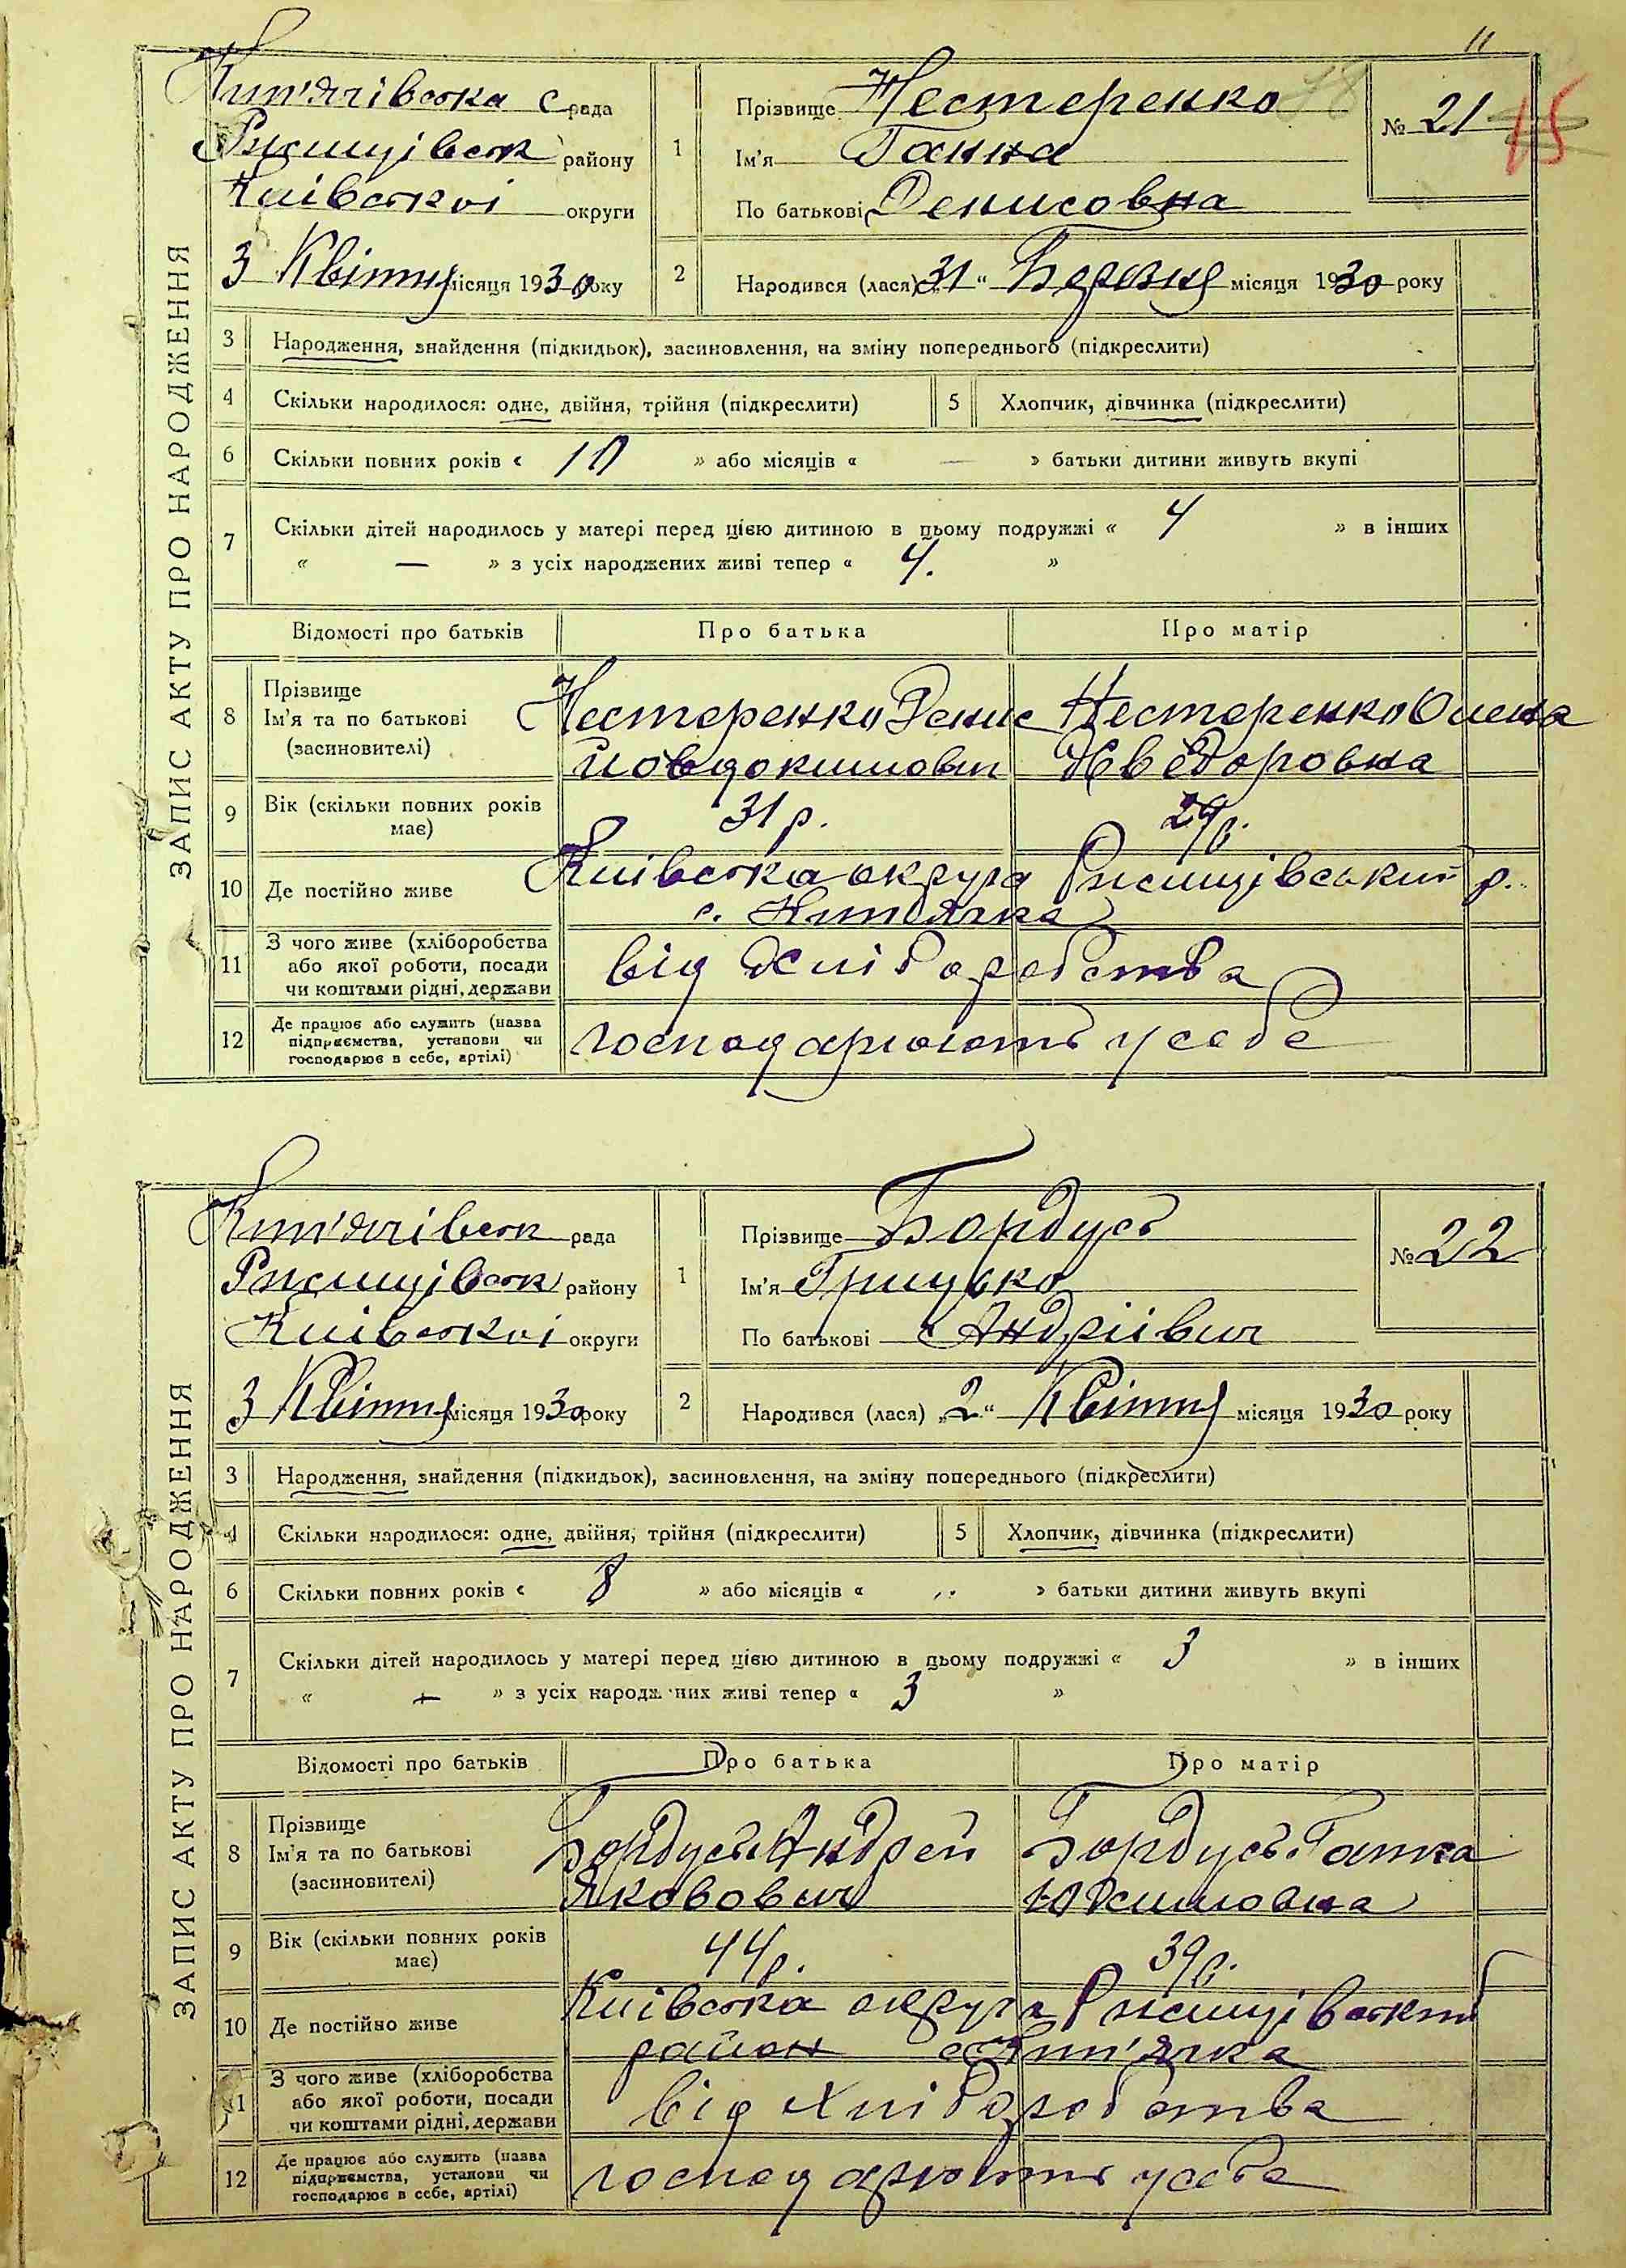 11
ЗАПИС АКТУ ПРО НАРОДЖЕННЯ
Кип'ячівська с рада
Ржищівськ району
Київської округи
3 Квітня місяця 1930 року
1
Прізвище Нестеренко
Ім'я Ганна
По батькові Денисовна
№ 21
15
2
Народився (лася) „31" Березня місяця 1930 року
3 Народження, знайдення (підкидьок), засиновлення, на зміну попереднього (підкреслити)
4 Скільки народилося: одне, двійня, трійня (підкреслити) 5 Хлопчик, дівчинка (підкреслити)
6 Скільки повних років « 10 » або місяців « — » батьки дитини живуть вкупі
7 Скільки дітей народилось у матері перед цією дитиною в цьому подружжі « 4 » в інших
« — » з усіх народжених живі тепер « 4. »
Відомості про батьків Про батька Про матір
8 Прізвище
Ім'я та по батькові
(засиновителі)
Нестеренко Денис
Йовдокимович
Нестеренко Олена
Хвёдоровна
9 Вік (скільки повних років
має)
31 р. 29 р.
10 Де постійно живе
Київська округа Ржищівський р.
с. Кип'ячка
11 З чого живе (хліборобства
або якої роботи, посади
чи коштами рідні, держави
від хліборобства
12 Де працює або служить (назва
підприємства, установи чи
господарює в себе, артілі)
господарюють у себе
ЗАПИС АКТУ ПРО НАРОДЖЕННЯ
Кип'ячівськ рада
Ржищівськ району
Київської округи
3 Квітня місяця 1930 року
1
Прізвище Бордусь
Ім'я Грицько
По батькові Андріївич
№ 22
2
Народився (лася) „2" Квітня місяця 1930 року
3 Народження, знайдення (підкидьок), засиновлення, на зміну попереднього (підкреслити)
4 Скільки народилося: одне, двійня, трійня (підкреслити) 5 Хлопчик, дівчинка (підкреслити)
6 Скільки повних років « 8 » або місяців « » батьки дитини живуть вкупі
7 Скільки дітей народилось у матері перед цією дитиною в цьому подружжі « 3 » в інших
« — » з усіх народжених живі тепер « 3 »
Відомості про батьків Про батька Про матір
8 Прізвище
Ім'я та по батькові
(засиновителі)
Бордусь Андрей
Яковович
Бордусь Ганна
9 Вік (скільки повних років
має)
44 р. 39 р.
10 Де постійно живе
Київська округа Ржищівський
район с. Кип'ячка
11 З чого живе (хліборобства
або якої роботи, посади
чи коштами рідні, держави
від хліборобства
12 Де працює або служить (назва
підприємства, установи чи
господарює в себе, артілі)
господарюють у себе